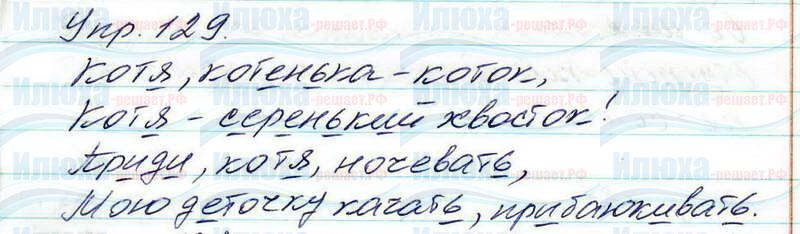 Упр. 129.
Котя, котенька-коток,
Котя - серенький хвосток!
Приди, котя, ночевать,
Мою деточку качать, прибаюкивать.